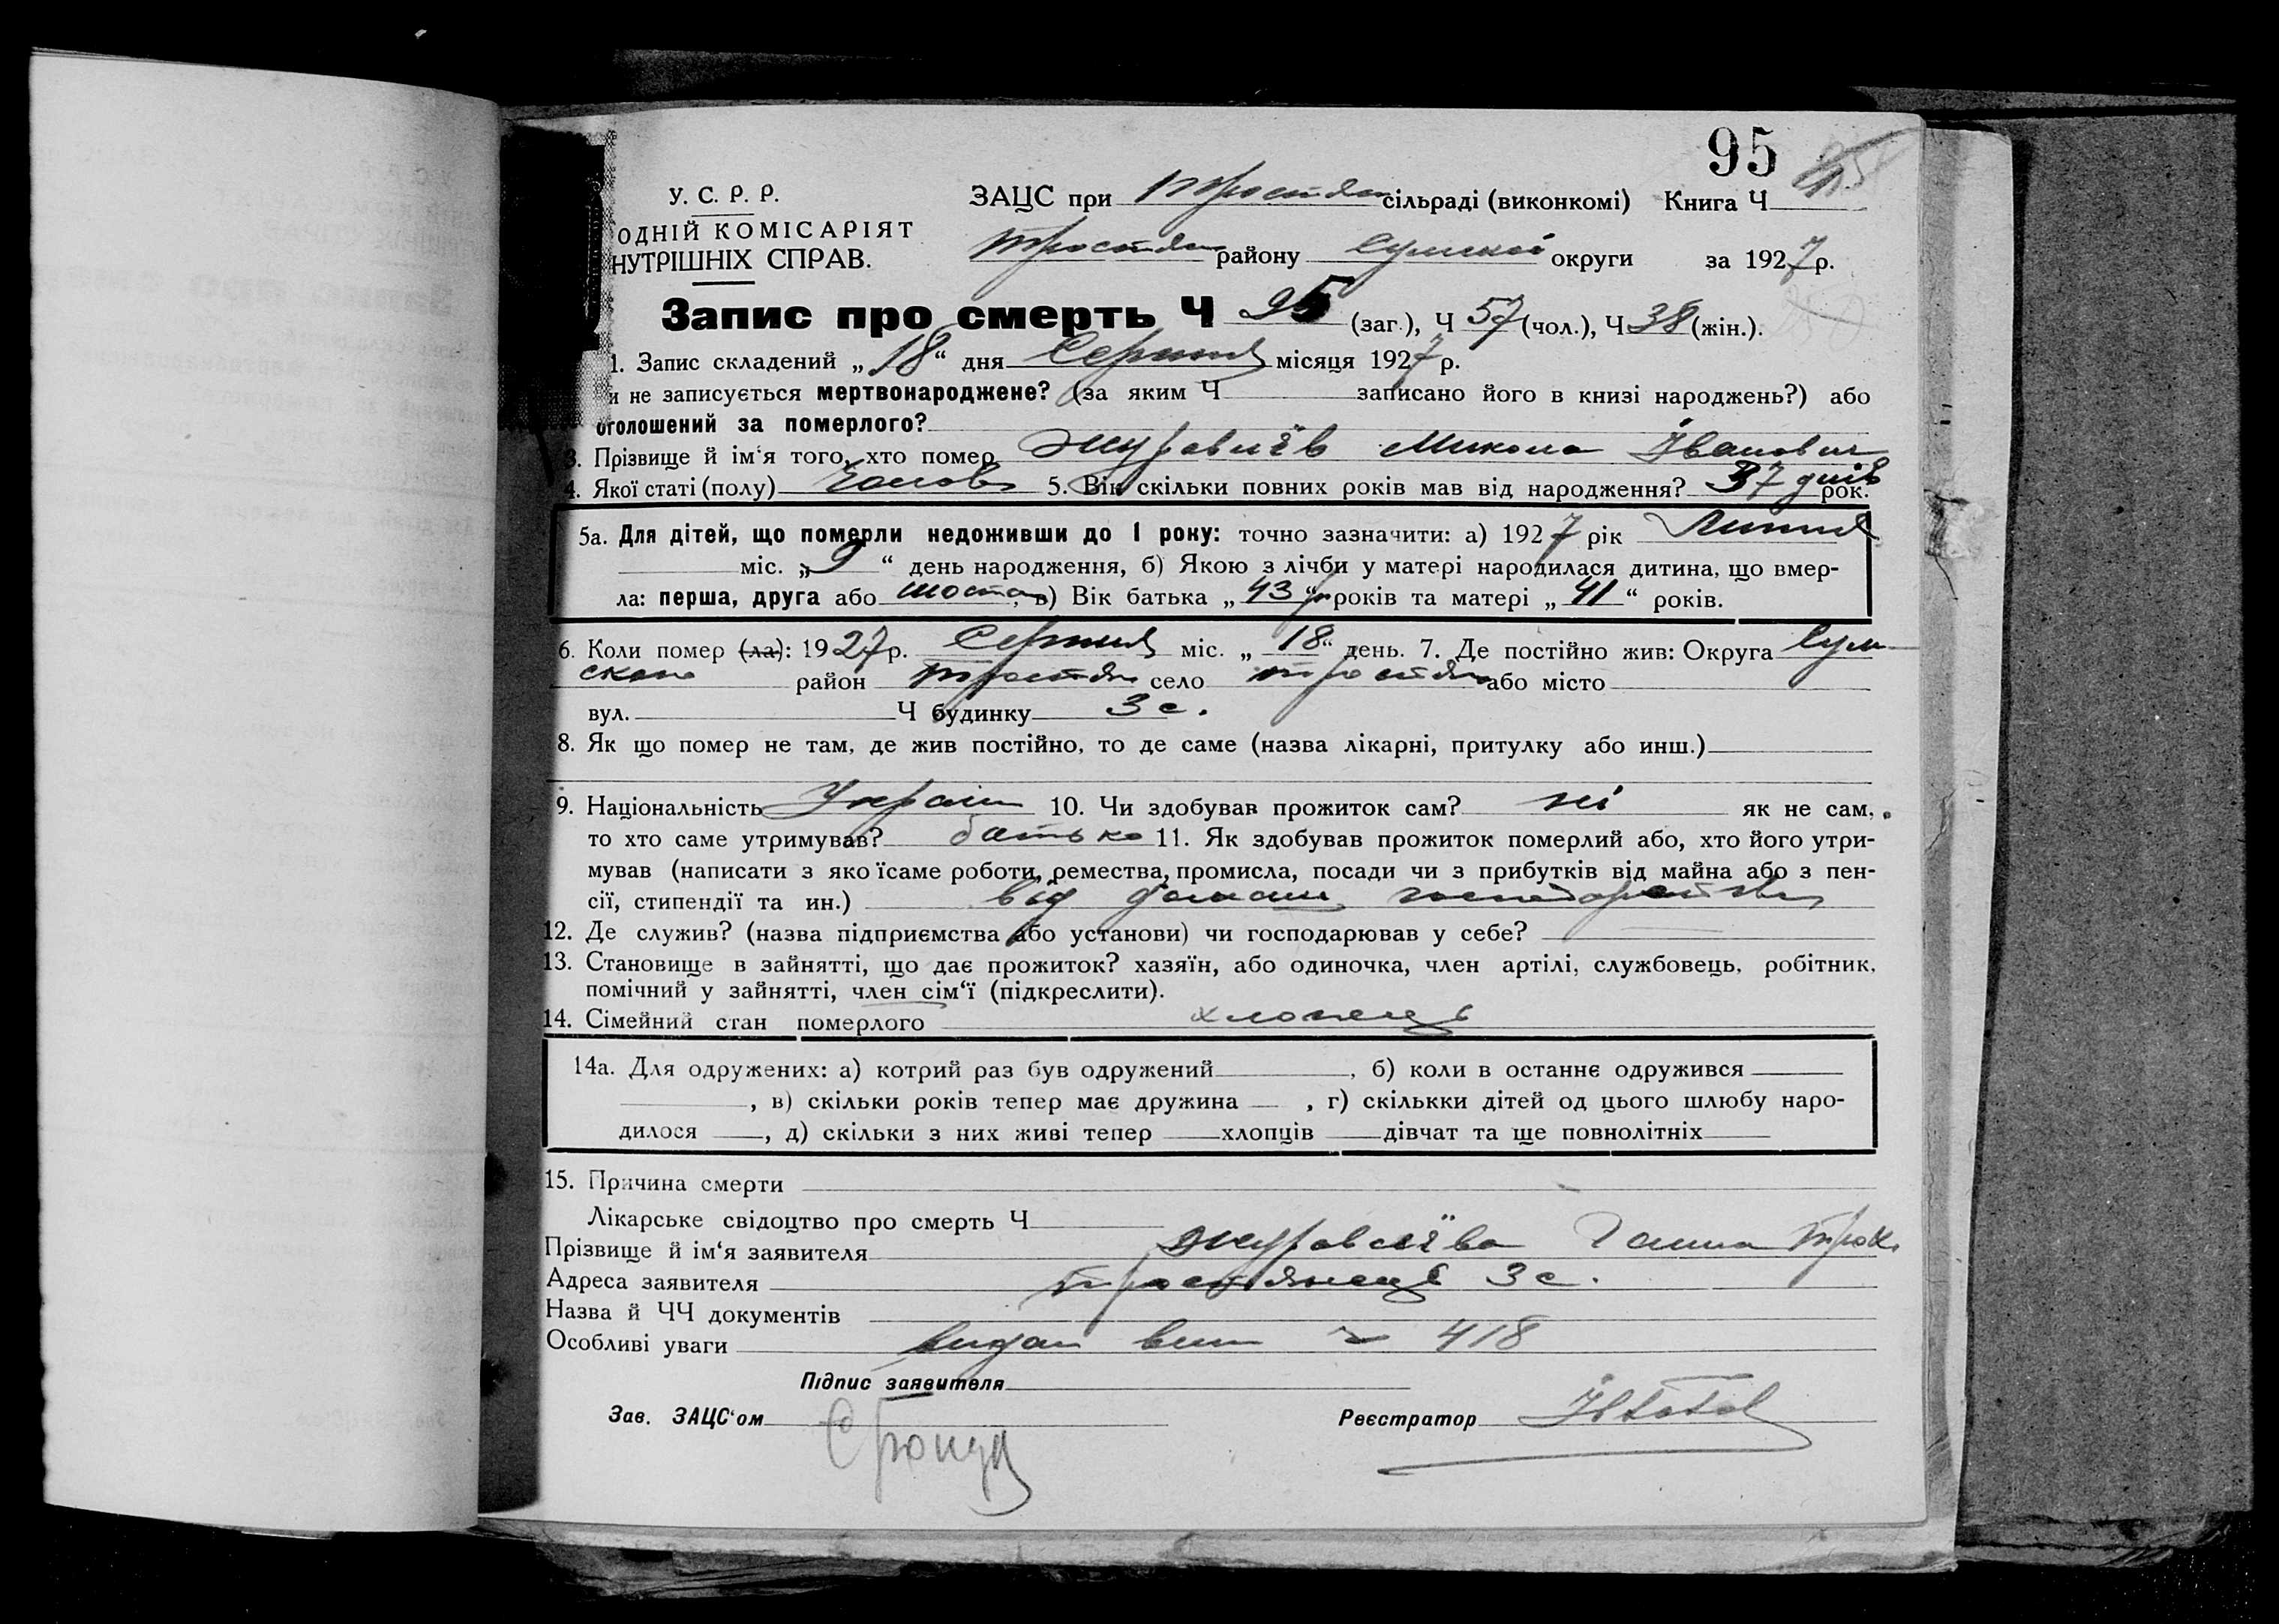 95
У. С. Р. Р.
ЗАЦС при Тростян сільраді (виконкомі) Книга Ч
ОДНІЙ КОМІСАРІЯТ
Тростян району Сумської округи за 1927 р.
НУТРІШНІХ СПРАВ.
Запис про смерть Ч 95 (заг.), Ч 57 (чол.), Ч 38 (жін.).
1. Запис складений „18“ дня Серпня місяця 1927 р.
и не записується мертвонароджене? (за яким Ч записано його в книзі народжень?) або
оголошений за померлого?
3. Прізвище й ім‘я того, хто помер Журавлїв Микола Іванович
4. Якої статі (полу) Чолов 5. Вік скільки повних років мав від народження? 37 днів рок.
5а. Для дітей, що померли недоживши до 1 року: точно зазначити: а) 1927 рік Липня
міс. „9“ день народження, б) Якою з лічби у матері народилася дитина, що вмер-
ла: перша, друга або шоста, в) Вік батька „43“ років та матері „41“ років.
6. Коли помер (ла): 1927 р. Серпня міс. „18“ день. 7. Де постійно жив: Округа Сум-
ська район Тростян село Тростян або місто
вул. Ч будинку 3 с.
8. Як що помер не там, де жив постійно, то де саме (назва лікарні, притулку або инш.)
9. Національність Україн 10. Чи здобував прожиток сам? ні як не сам,
то хто саме утримував? батько 11. Як здобував прожиток померлий або, хто його утри-
мував (написати з яко їсаме роботи, ремества, промисла, посади чи з прибутків від майна або з пен-
сії, стипендії та ин.) від домаш господарства
12. Де служив? (назва підприємства або установи) чи господарював у себе?
13. Становище в зайнятті, що дає прожиток? хазяїн, або одиночка, член артілі, службовець, робітник,
помічний у зайнятті, член сім‘ї (підкреслити).
14. Сімейний стан померлого хлопець
14а. Для одружених: а) котрий раз був одружений, б) коли в останнє одружився
, в) скільки років тепер має дружина , г) скількки дітей од цього шлюбу наро-
дилося , д) скільки з них живі тепер хлопців дівчат та ще повнолітніх
15. Причина смерти
Лікарське свідоцтво про смерть Ч
Прізвище й ім‘я заявителя Журавлїва Ганна
Адреса заявителя Тростянець 3 с.
Назва й ЧЧ документів
Особливі уваги видан 418
Підпис заявителя
Зав. ЗАЦС‘ом
Реєстратор